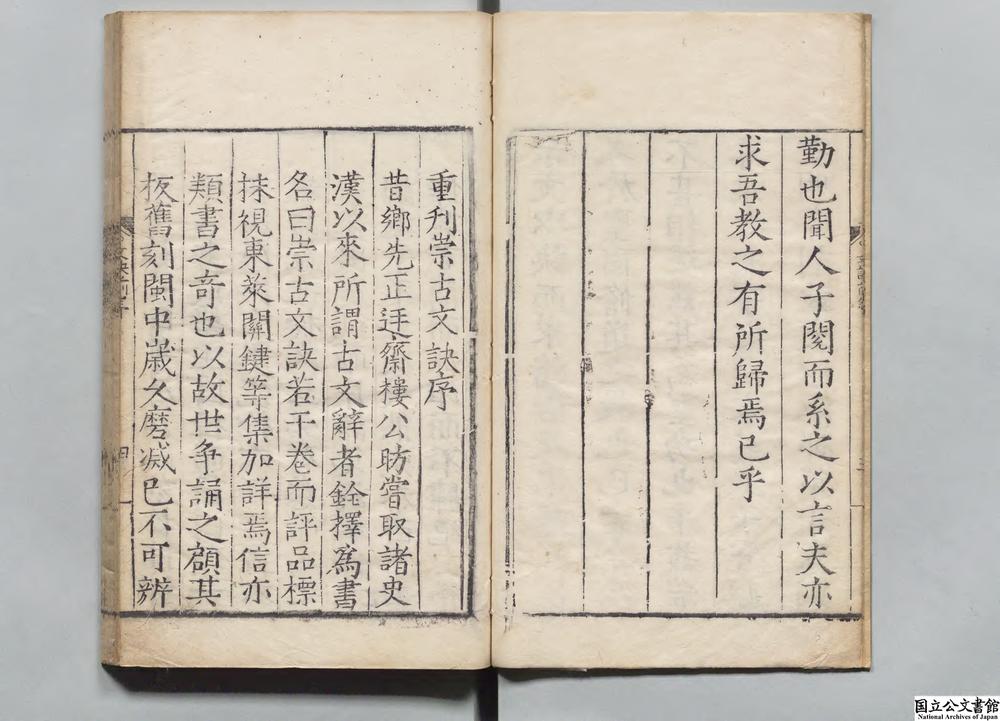 勤也聞人子閱而系之以言夫亦
求吾教之有所歸焉已乎
重刋崇古文訣序
昔鄉先正迂齋樓公昉嘗取諸史
漢以來所謂古文辭者銓擇爲書
名曰崇古文訣若干卷而評品標
抹視東萊關鍵等集加詳焉信亦
類書之奇也以故世争誦之顧其
板舊刻閩中歲久磨滅已不可辨
四
国立公文書館
National Archives of Japan